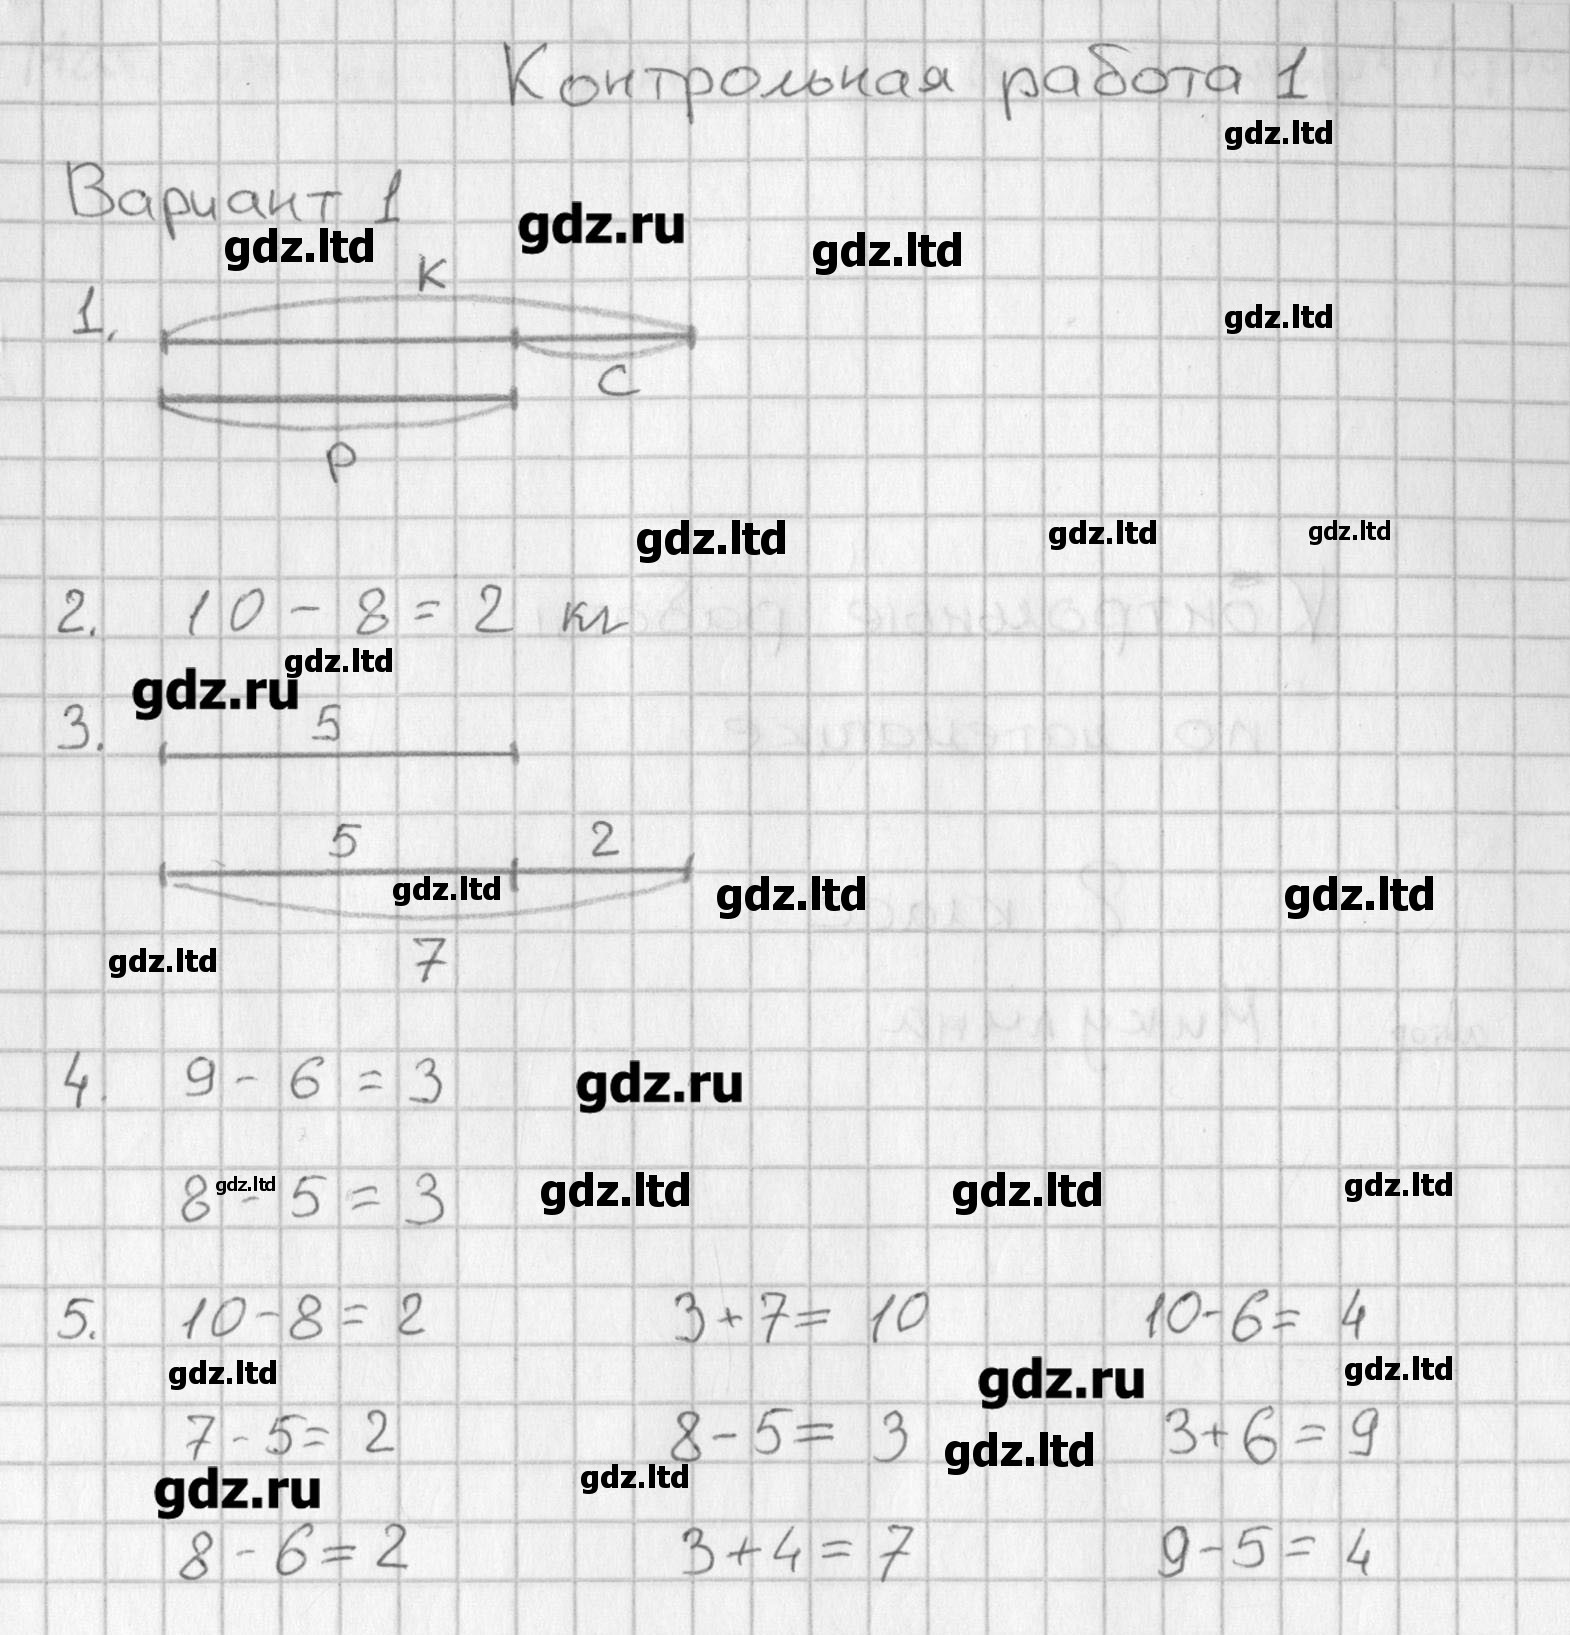 Контрольная работа 1
gdz.ltd
Вариант 1
gdz.ltd gdz.ru gdz.ltd
К
1.
gdz.ltd
С
Р
gdz.ltd gdz.ltd gdz.ltd
2. 10 - 8 = 2 кг
gdz.ltd
gdz.ru
3. 5
5 2
gdz.ltd gdz.ltd gdz.ltd
gdz.ltd 7
4. 9 - 6 = 3 gdz.ru
8 - 5 = 3 gdz.ltd gdz.ltd gdz.ltd gdz.ltd
5. 10 - 8 = 2 3 + 7 = 10 10 - 6 = 4
gdz.ltd gdz.ru gdz.ltd
7 - 5 = 2 8 - 5 = 3 gdz.ltd 3 + 6 = 9
gdz.ru gdz.ltd
8 - 6 = 2 3 + 4 = 7 9 - 5 = 4